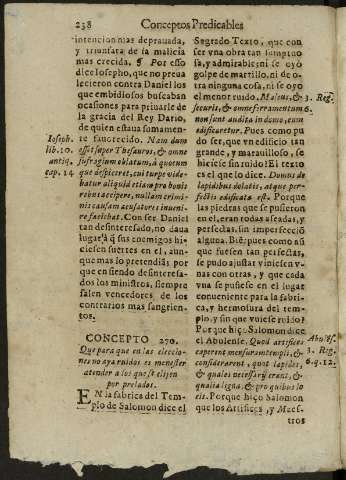 238 Conceptos Predicables
intencion mas deprauada,
y triunfara de la malicia
mas crecida. ¶ Por esso
dice Iosepho, que no preua
lecieron contra Daniel los
que embidiosos buscaban
ocasiones para priuarle de
la gracia del Rey Dario,
de quien estaua somamen-
te fauorecido. Nam dum
esset supra Thesauros, & omne
suffragium oblatum, à quotum
quæ aspiceret, cui turpe vide-
batur aliquid etiam pro bonis
rebus accipere, nullam crimi-
nis causam accusatores inuene-
re facibat. Con ser Daniel
tan desinteresado, no daua
lugar à q̃ sus enemigos hi-
ciesen suertes en el, aun-
que mas lo pretendiã; por
que en siendo desinteresa-
dos los ministros, siempre
salen vencedores de los
contrarios mas sangrien-
tos.
Ioseph.
lib. 10.
antiq.
cap. 14
CONCEPTO 270.
Que para que en las eleccio-
nes no aya ruidos es menester
atender a los que se elijen
por prelados.
EN la fabrica del Tem-
plo de Salomon dice el
Sagrado Texto, que con
ser vna obra tan sumptuo-
sa, y admirable; ni se oyó
golpe de martillo, ni de o-
tra ninguna cosa, ni se oyó
el menor ruido, Maleus, &
securis, & omne ferramentum
non sunt audita in domo, cum
ædificaretur. Pues como pu
do ser, que vn edificio tan
grande, y marauilloso, se
hiciese sin ruido? El texto
es el que lo dice. Domus de
lapidibus dolatis, atque per-
fectis ædificata est. Porque
las piedras que se pusieron
en el, eran todas aseadas, y
perfectas, sin imperfecció
alguna. Biẽ: pues como asi
que fuesen tan perfectas,
se pudo ajustar viniesen v-
nas con otras, y que cada
vna se pusiese en el lugar
conueniente para la fabri-
ca, y hermosura del tem-
plo, y sin que vuiese ruido?
Porque hiço Salomon dice
el Abulense. Quod artifices
caperent mensuram templi, &
considerarent, quot lapides,
& quales necessarij erant, &
qualia ligna, & pro quibus lo
cis. Porque hiço Salomon
que los Artifices, y Maes-
tros
3. Reg.
6.
Abulẽs.
3. Reg.
6. q. 12.